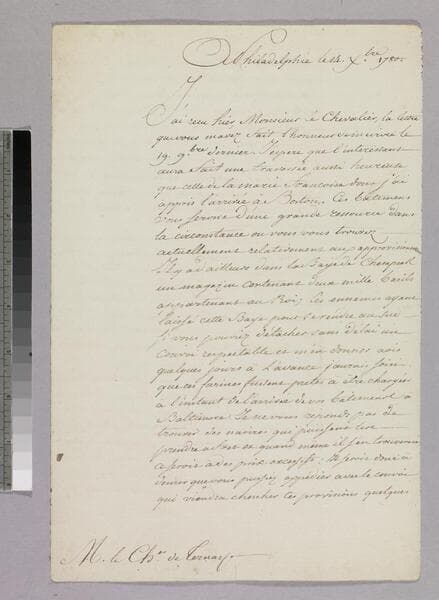 Philadelphie le 14. Xbre 1780.
J'ai reçu hier Monsieur le Chevalier, la lettre
que vous m'avez fait l'honneur de m'ecrire le
19. 9bre dernier. J'espere que l'interessant
aura fait une traversée aussi heureuse
que celle de la marie francoise dont j'ai
appris l'arrivée à Boston. Ces batimens
vous seront d'une grande ressource dans
la circonstance ou vous vous trouvez
actuellement relativement aux approvisionn
Il y a d'ailleurs dans la Baye de Chesapeak
un magazin contenant deux mille barils
appartenant au Roi; les ennemis ayant
laissé cette Baye pour se rendre au Sud
vous pourriez détacher sans délai un
Convoi respectable et m'en donner avis
quelques jours à l'avance j'aurois soin
que ces farines fussent pretes à etre chargées
à l'instant de l'arrivée de vos batimens à
Baltimore. Je ne vous reponds pas de
trouver des navires qui puissent les
prendre à fret et quand meme il s'en trouveroit
ce seroit à des prix excessifs. Il seroit donc à
desirer que vous pussiez expédier avec le convoi
qui viendra chercher ces provisions quelques
M. le Chr. de Ternay